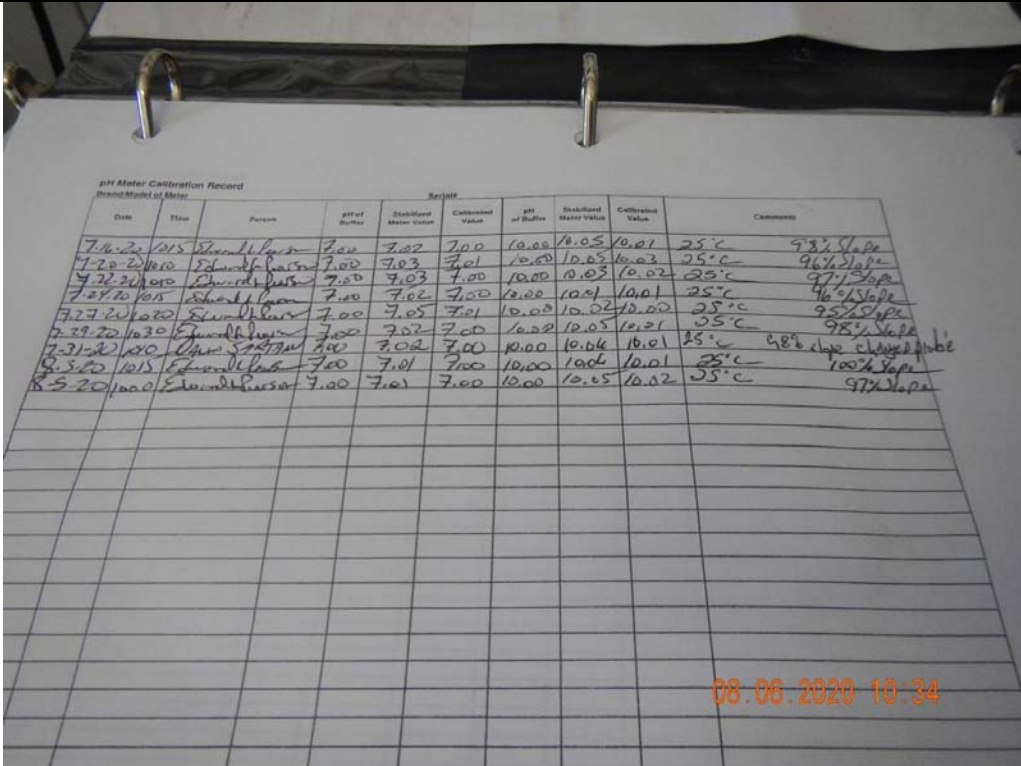 pH Meter Calibration Record
Brand/Model of Meter Serial#
Date Time Person pH of Buffer Stabilized Meter Value Calibrated Value pH of Buffer Stabilized Meter Value Calibrated Value Comments
7-16-20 1015 7.00 7.02 7.00 10.00 10.05 10.01 25°C 98% Slope
7-20-20 1010 7.00 7.03 7.01 10.00 10.05 10.03 25°C 96% Slope
7-22-20 1010 7.00 7.03 7.00 10.00 10.03 10.02 25°C 97% Slope
7-24-20 1015 7.00 7.02 7.00 10.00 10.01 10.01 25°C 96% Slope
7-27-20 1020 7.00 7.05 7.01 10.00 10.02 10.00 25°C 95% Slope
7-29-20 1030 7.00 7.02 7.00 10.00 10.05 10.01 25°C 98% Slope
7-31-20 1010 7.00 7.02 7.00 10.00 10.04 10.01 25°C 98% slope changed probe
8-3-20 1015 7.00 7.01 7.00 10.00 10.01 25°C 100% Slope
8-5-20 1000 7.00 7.01 7.00 10.00 10.05 10.02 25°C 97% Slope
08.06.2020 10:34